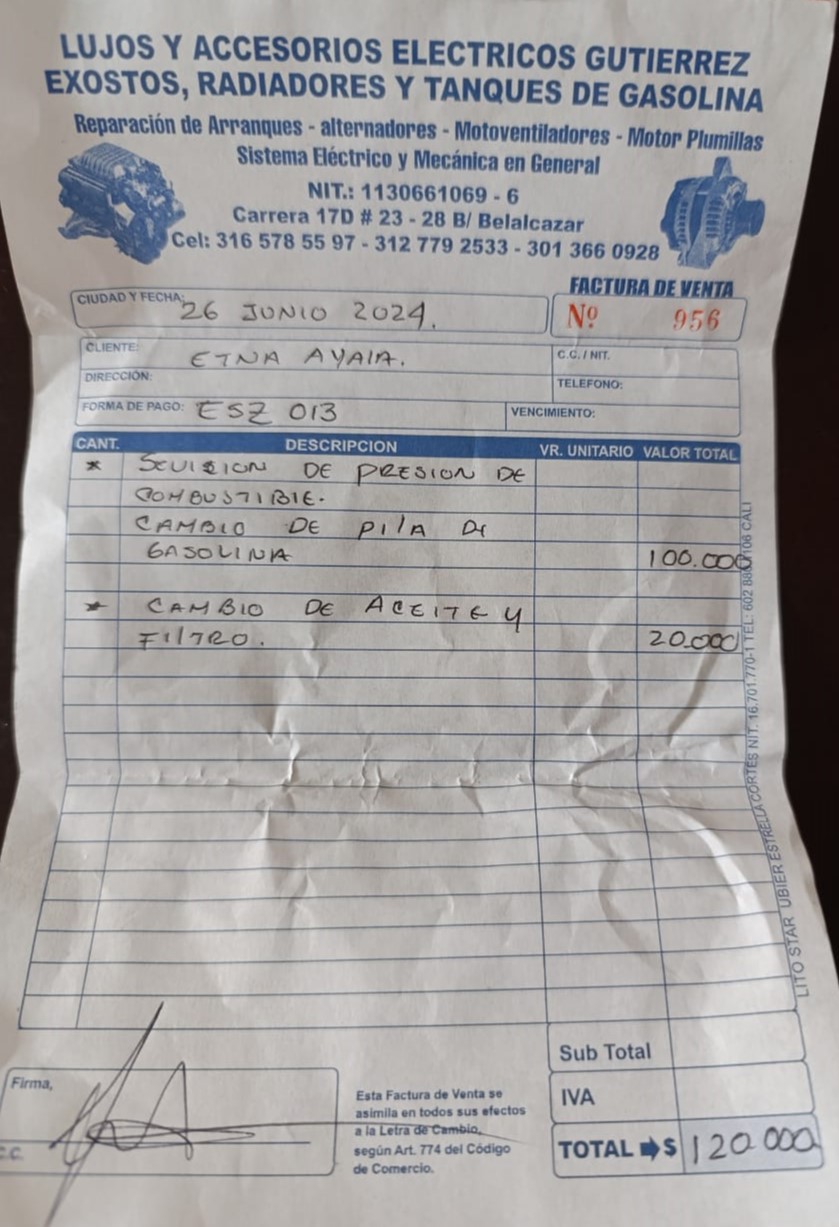 LUJOS Y ACCESORIOS ELECTRICOS GUTIERREZ
EXOSTOS, RADIADORES Y TANQUES DE GASOLINA
Reparación de Arranques - alternadores - Motoventiladores - Motor Plumillas
Sistema Eléctrico y Mecánica en General
NIT.: 1130661069 - 6
Carrera 17D # 23 - 28 B/ Belalcazar
Cel: 316 578 55 97 - 312 779 2533 - 301 366 0928
FACTURA DE VENTA
CIUDAD Y FECHA: 26 JUNIO 2024.
Nº 956
CLIENTE: ETNA AYALA.
C.C. / NIT.
DIRECCIÓN:
TELEFONO:
FORMA DE PAGO: ESZ 013
VENCIMIENTO:
CANT. DESCRIPCION VR. UNITARIO VALOR TOTAL
* DE PRESION DE
COMBUSTIBLE.
CAMBIO DE PILA DE
GASOLINA 100.000
* CAMBIO DE ACEITE Y
FILTRO. 20.000
LITO STAR UBIER ESTRELLA CORTES NIT. 16.701.770-1 TEL: 602 CALI
Sub Total
IVA
TOTAL ➡$ 120.000
Firma,
C.C.
Esta Factura de Venta se
asimila en todos sus efectos
a la Letra de Cambio,
según Art. 774 del Código
de Comercio.